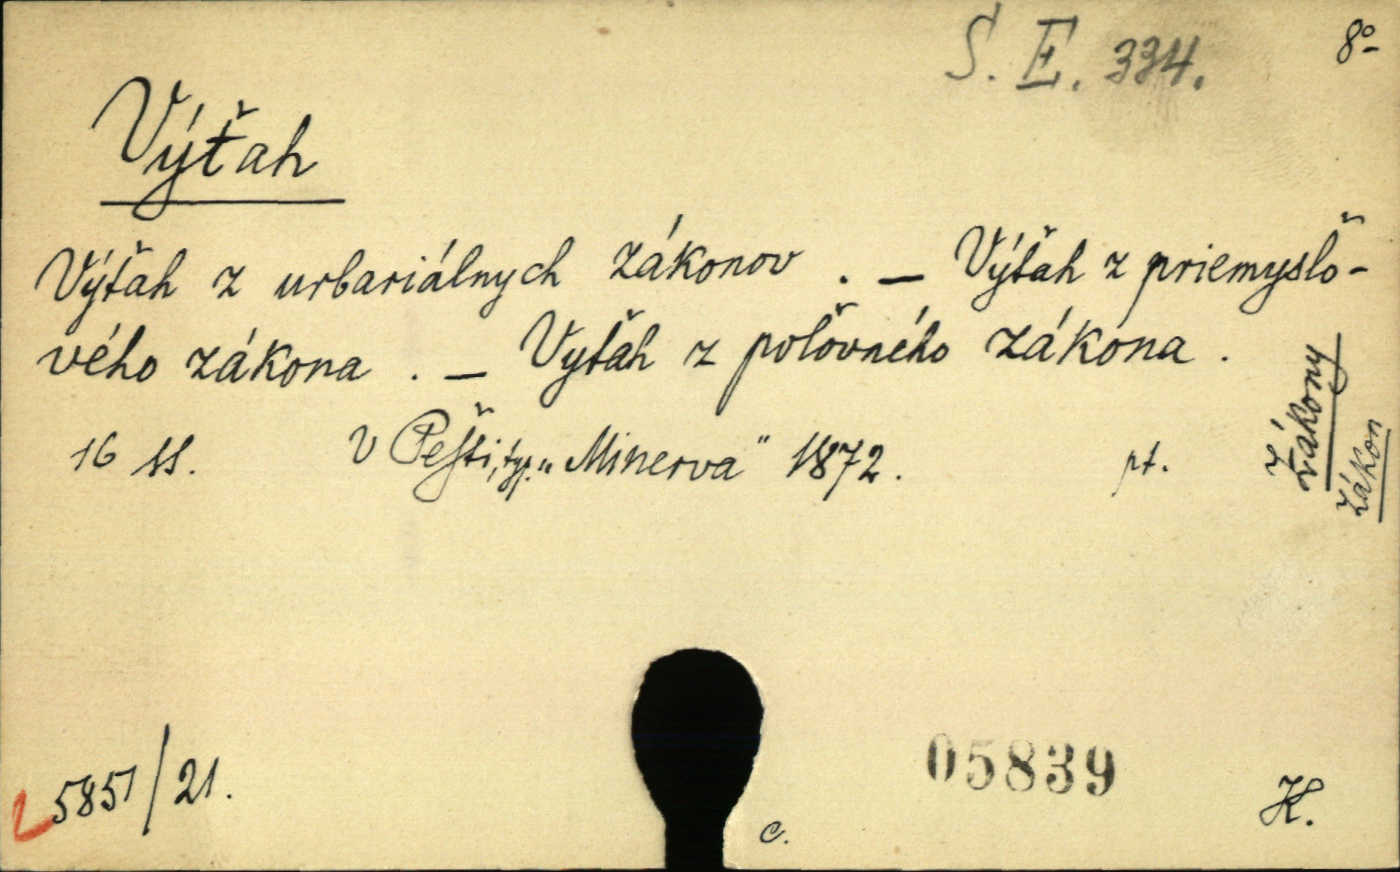 S. E. 334.
8º
Výťah
Výťah z urbariálnych zákonov. — Výťah z priemyslo-
vého zákona. — Vyťah z poľovného zákona.
16 ss. V Pešti, typ. „Minerva" 1872. pt.
Zákony
Zákon
5851/21.
05839
c.
H.